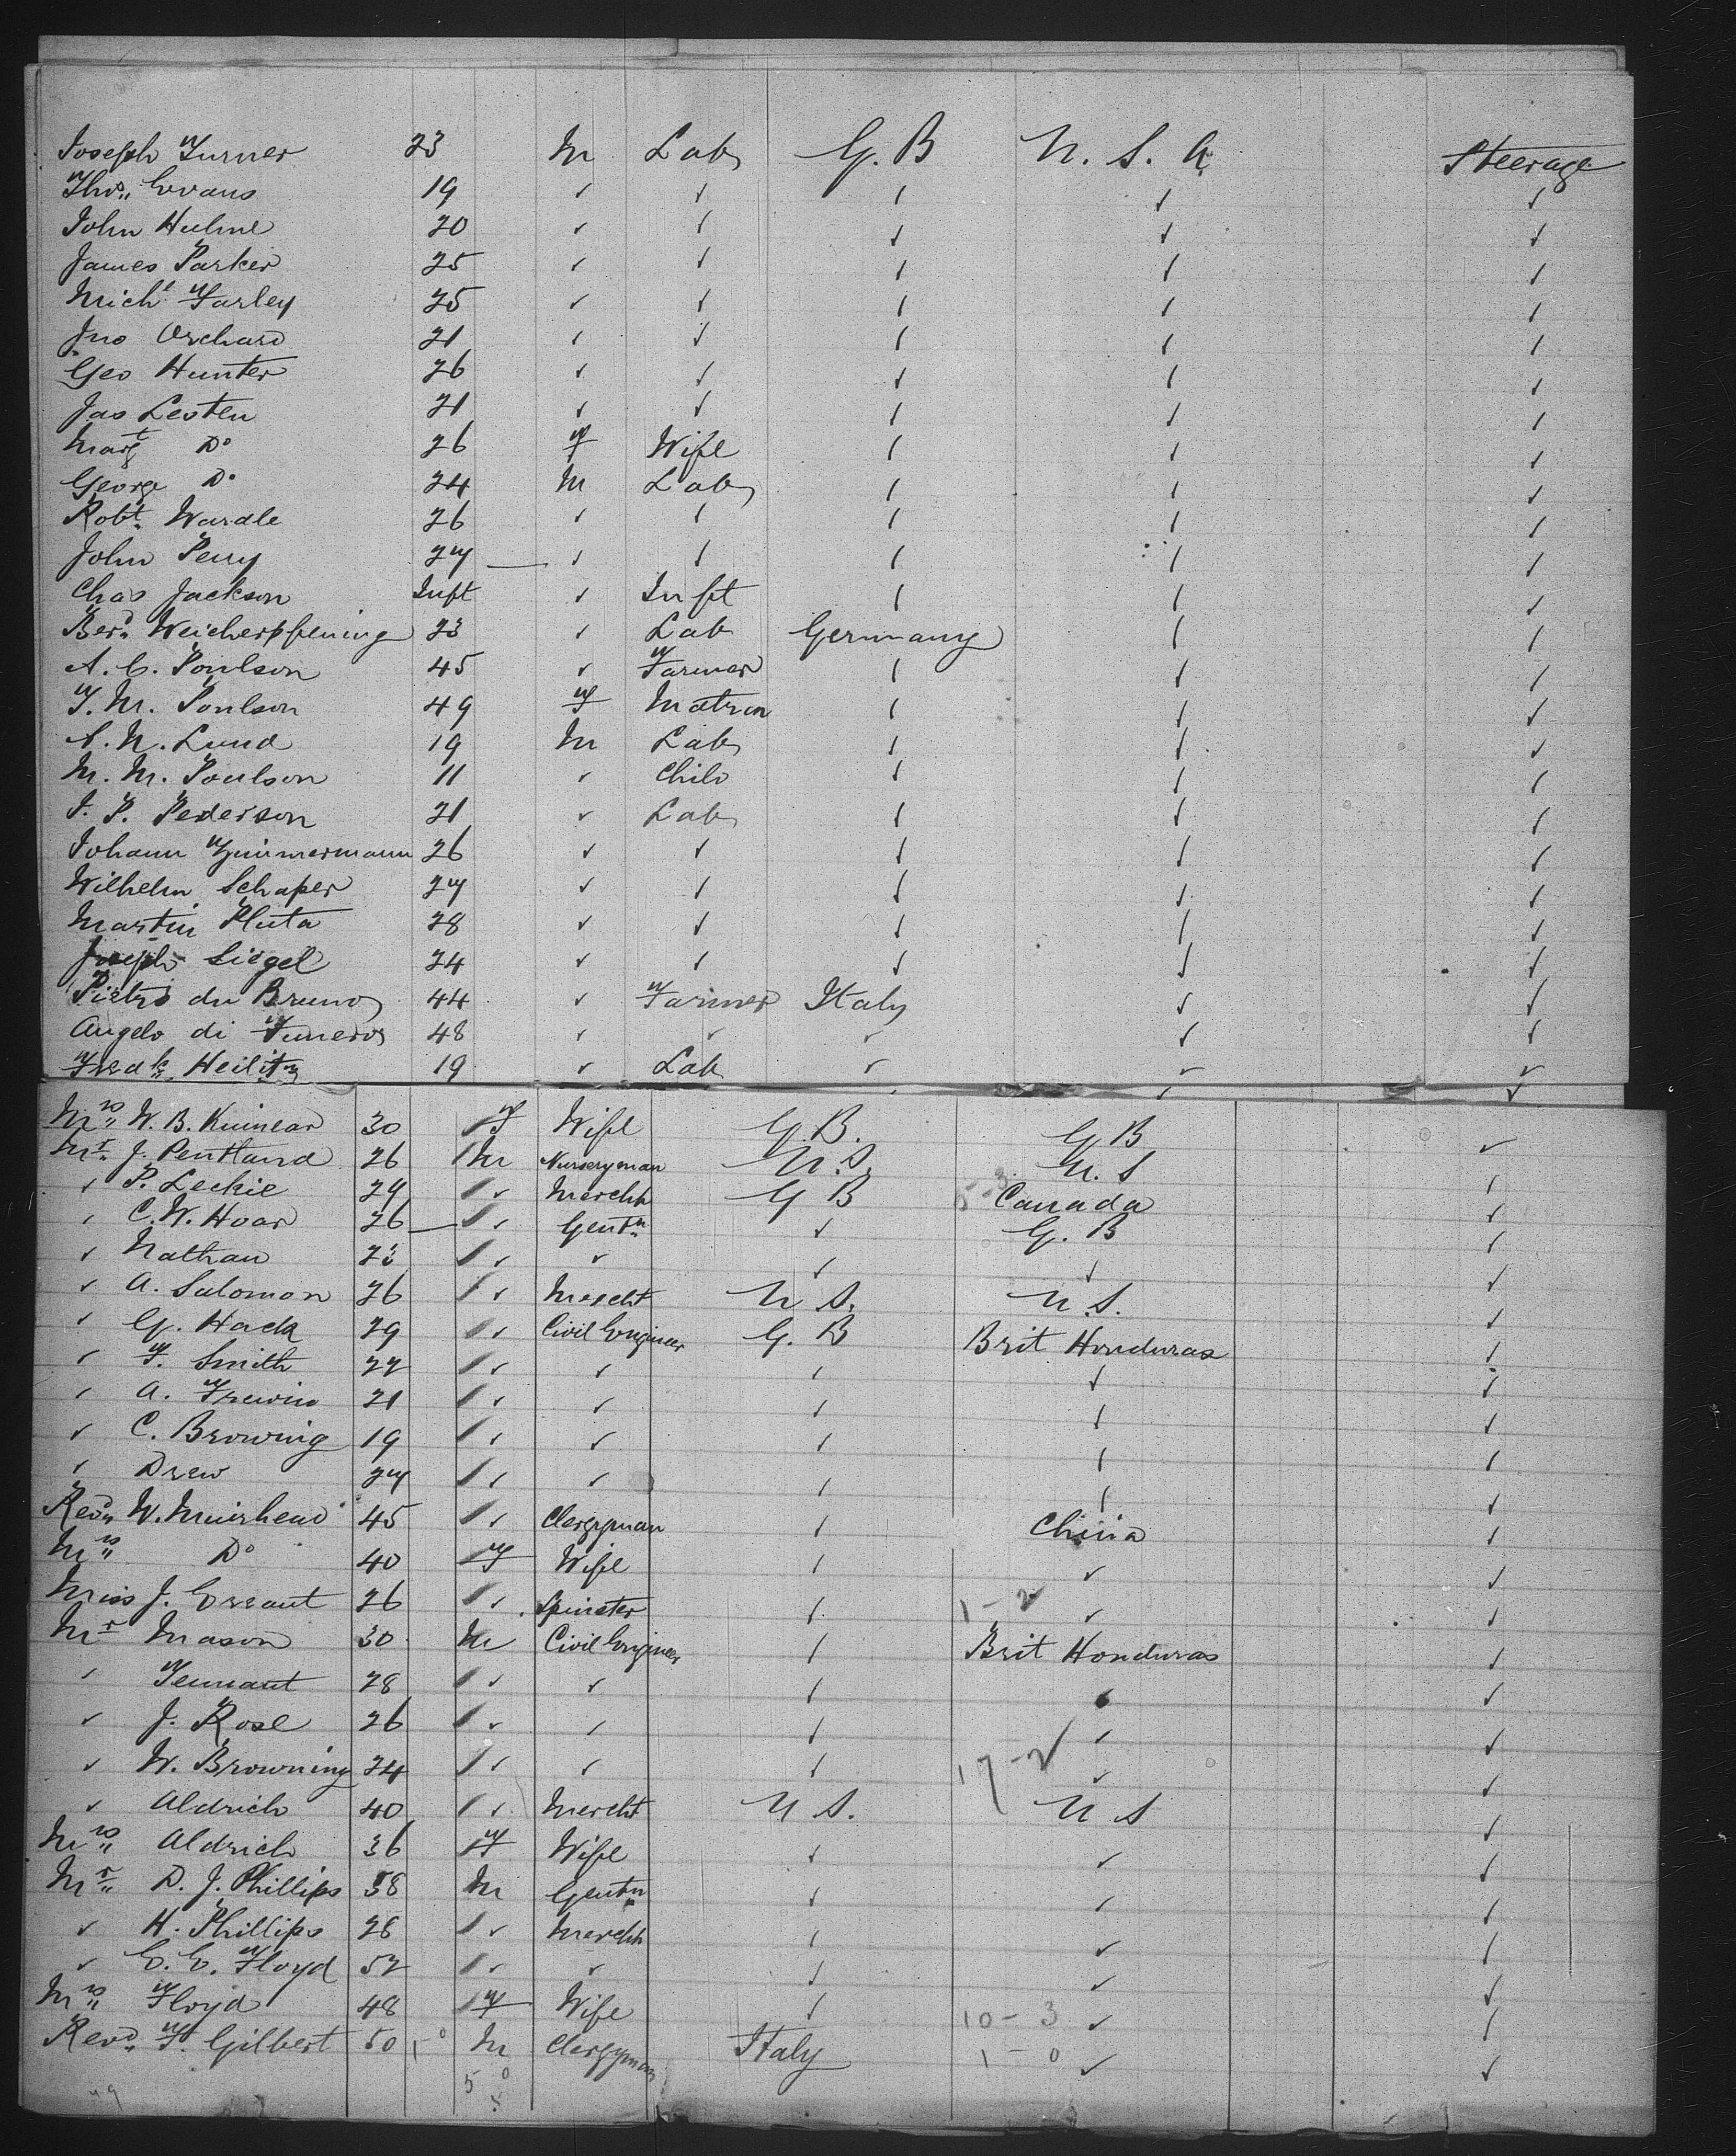 Joseph Turner 23 M Lab G. B U. S. A Steerage
Thos„ Evans 19 ✓ ✓ ✓ ✓ ✓
John Hulme 20 ✓ ✓ ✓ ✓ ✓
James Parker 25 ✓ ✓ ✓ ✓ ✓
Michl Farley 25 ✓ ✓ ✓ ✓ ✓
Jno Orchard 21 ✓ ✓ ✓ ✓ ✓
Geo Hunter 26 ✓ ✓ ✓ ✓ ✓
Jas Lesten 21 ✓ ✓ ✓ ✓ ✓
Margt Do 26 F Wife ✓ ✓ ✓
George Do 24 M Lab ✓ ✓ ✓
Robt Wardle 26 ✓ ✓ ✓ ✓ ✓
John Perry 27 — ✓ ✓ ✓ ✓ ✓
Chas Jackson Inft ✓ Inft ✓ ✓ ✓
Berd Weicherpfening 23 ✓ Lab Germany ✓ ✓
A. C. Poulson 45 ✓ Farmer ✓ ✓ ✓
T. M. Poulson 49 F Matron ✓ ✓ ✓
A. N. Lund 19 M Lab ✓ ✓ ✓
M. M. Poulson 11 ✓ Child ✓ ✓ ✓
J. P. Pederson 21 ✓ Lab ✓ ✓ ✓
Johann Zimmermann 26 ✓ ✓ ✓ ✓ ✓
Wilhelm Schaper 27 ✓ ✓ ✓ ✓ ✓
Martin Pluta 28 ✓ ✓ ✓ ✓ ✓
Joseph Siegel 24 ✓ ✓ ✓ ✓ ✓
Pietro du Bruno 44 ✓ Farmer Italy ✓ ✓
Angelo di Funeros 48 ✓ ✓ ✓ ✓ ✓
Fredk Heilitz 19 ✓ Lab ✓ ✓ ✓
Mrs„ W. B. Kinnear 30 F Wife G. B. G B ✓
Mr„ J. Pentland 26 M Nurseryman U. S. U. S ✓
✓ P. Leckie 29 ✓ Mercht G B Canada ✓
✓ C. W. Hoar 26 — ✓ Gentn ✓ G. B ✓
✓ Nathan 23 ✓ ✓ ✓ ✓ ✓
✓ A. Salomon 26 ✓ Mercht U S. U. S. ✓
✓ G. Hack 29 ✓ Civil Engineer G. B Brit Honduras ✓
✓ F. Smith 22 ✓ ✓ ✓ ✓ ✓
✓ A. Frewin 21 ✓ ✓ ✓ ✓ ✓
✓ C. Browing 19 ✓ ✓ ✓ ✓ ✓
✓ Drew 27 ✓ ✓ ✓ ✓ ✓
Revd„ W. Muirhead 45 ✓ Clergyman ✓ China ✓
Mrs„ Do 40 F Wife ✓ ✓ ✓
Miss J. 26 ✓ Spinster ✓ 1 - 2 ✓ ✓
Mr Mason 30 M Civil Engineer ✓ Brit Honduras ✓
✓ Tennant 28 ✓ ✓ ✓ ✓ ✓
✓ J. Rose 26 ✓ ✓ ✓ ✓ ✓
✓ W. Browning 24 ✓ ✓ ✓ 17 - 2 ✓ ✓
✓ Aldrich 40 ✓ Mercht U S. U S ✓
Mrs„ Aldrich 36 F Wife ✓ ✓ ✓
Mr„ D. J. Phillips 58 M Gentn ✓ ✓ ✓
✓ H. Phillips 28 ✓ Mercht ✓ ✓ ✓
✓ E. E. Floyd 52 ✓ ✓ ✓ ✓ ✓
Mrs„ Floyd 48 F Wife ✓ 10 - 3 ✓ ✓
Revd„ F. Gilbert 50 M Clergyman Italy 1 - 0 ✓ ✓